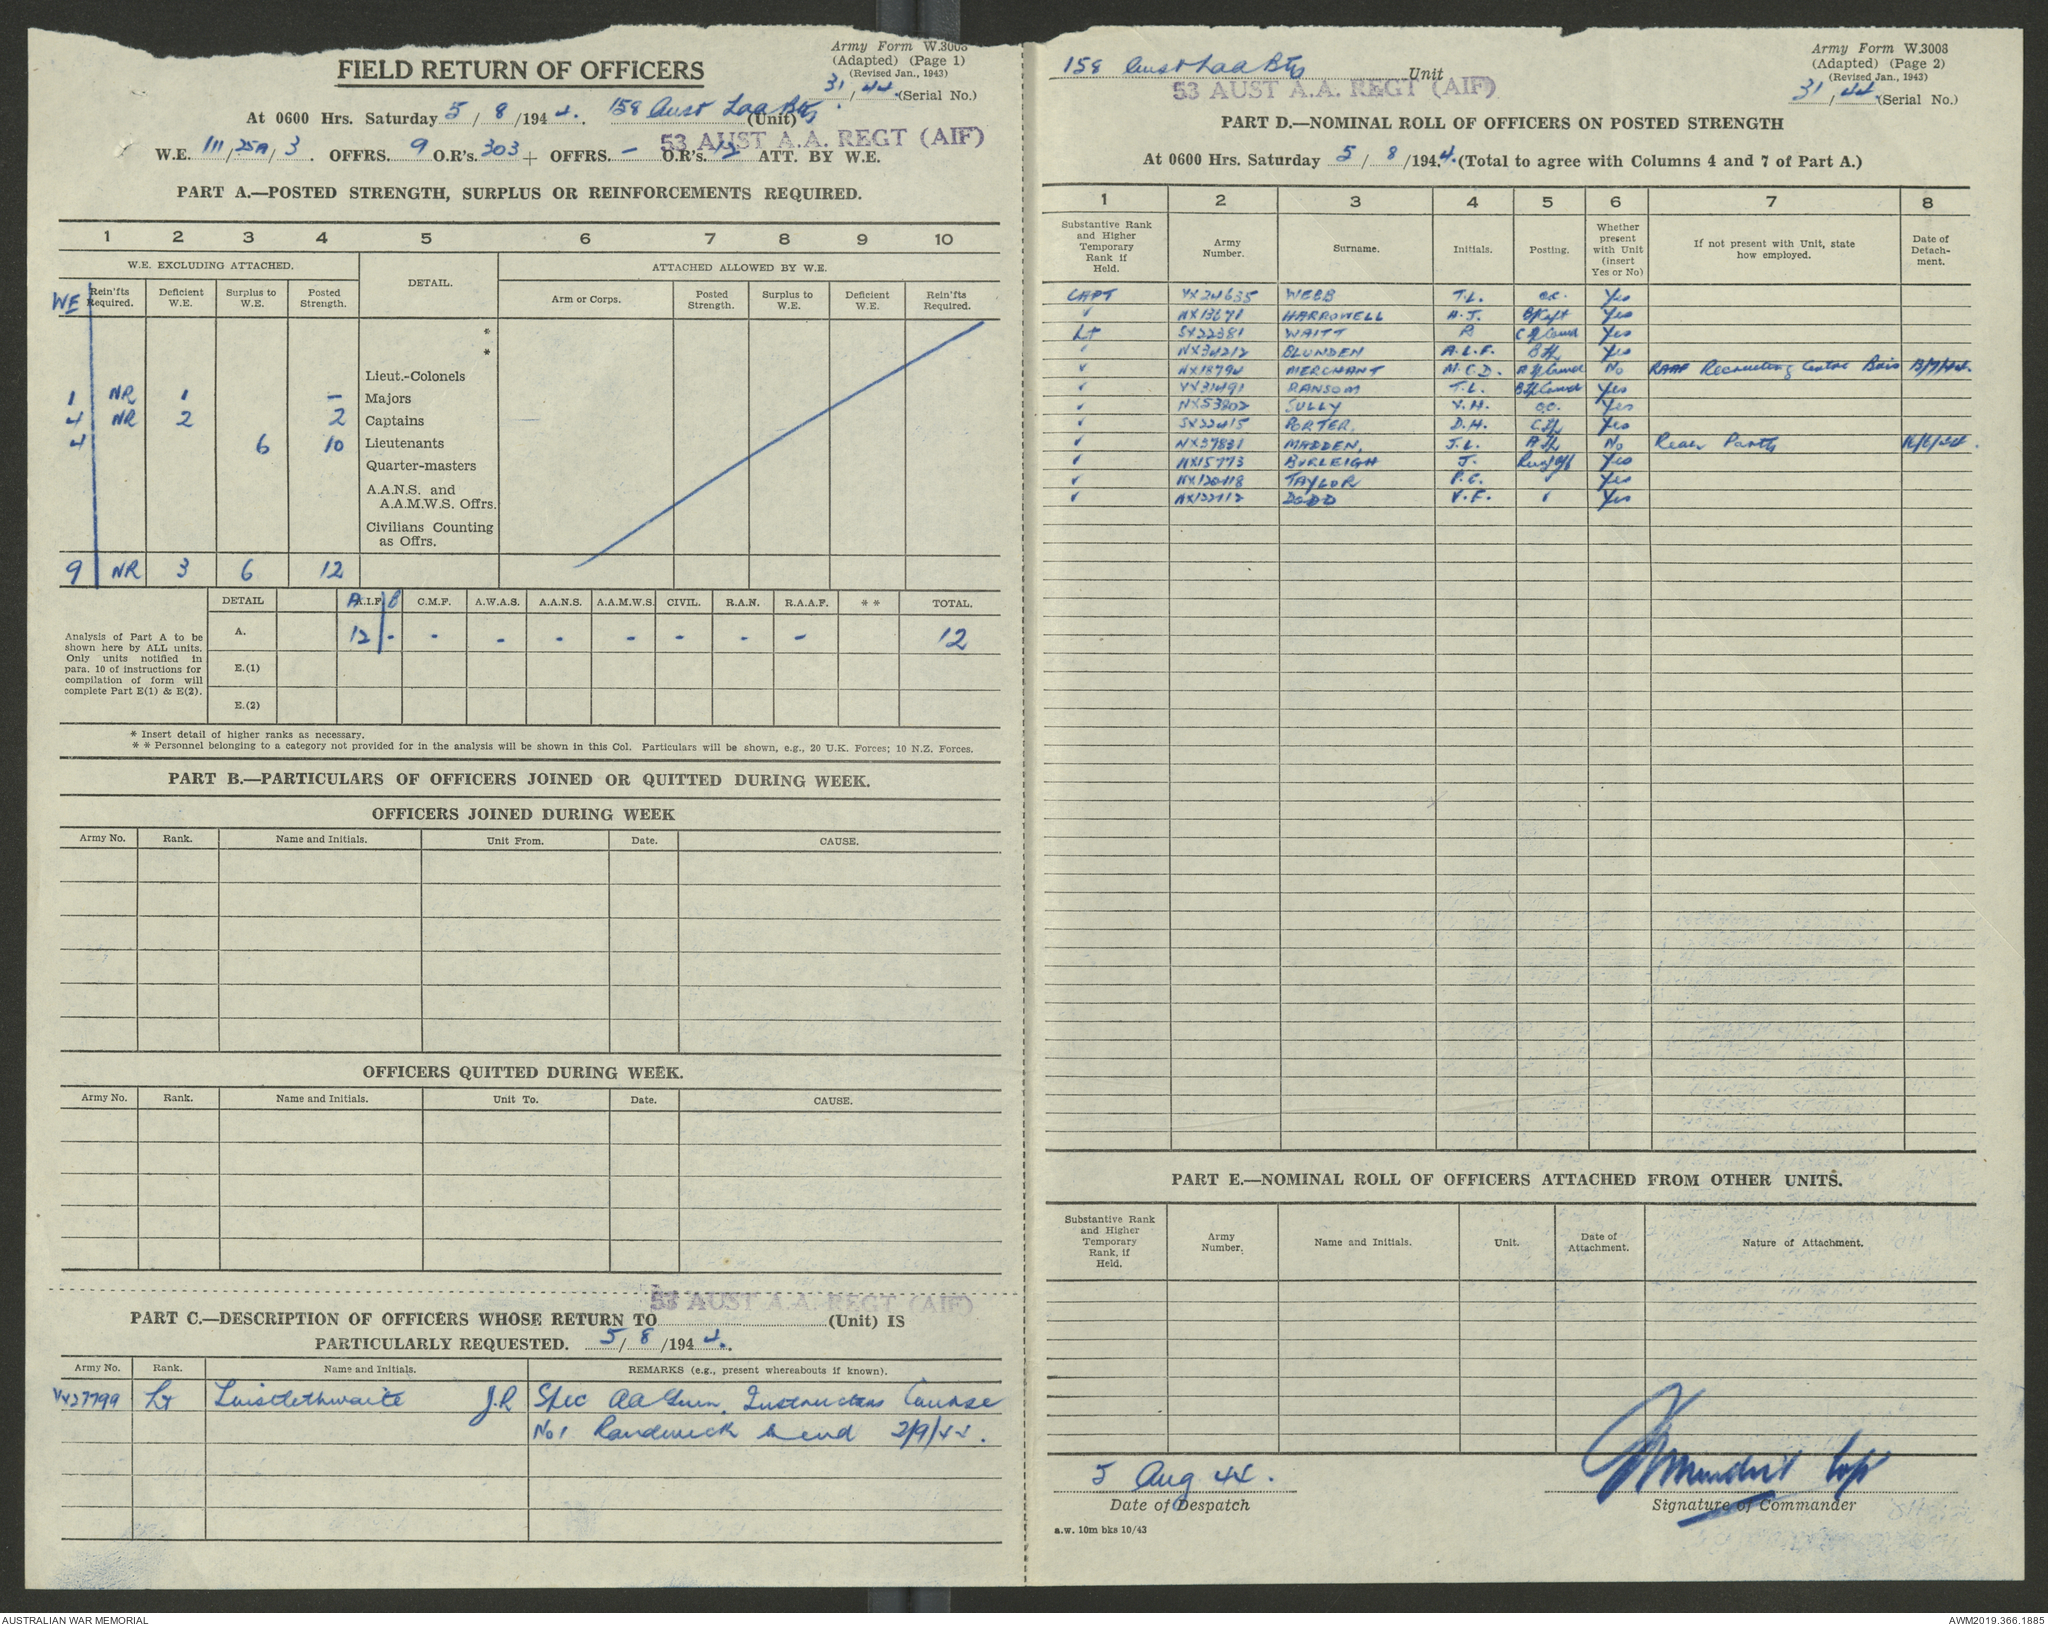 Army Form W.3008
(Adapted) (Page 1)
(Revised Jan., 1943)
31/44 (Serial No.)
FIELD RETURN OF OFFICERS
At 0600 Hrs. Saturday 5/8/1944. 158 Aust Laa Bty (Unit)
53 AUST A.A. REGT (AIF)
W.E. III/25A/3. OFFRS. 9 O.R's. 303 + OFFRS. - O.R's. 12 ATT. BY W.E.
PART A.—POSTED STRENGTH, SURPLUS OR REINFORCEMENTS REQUIRED.
1 2 3 4 5 6 7 8 9 10
W.E. EXCLUDING ATTACHED. DETAIL. ATTACHED ALLOWED BY W.E.
WE Rein'fts Required. Deficient W.E. Surplus to W.E. Posted Strength. Arm or Corps. Posted Strength. Surplus to W.E. Deficient W.E. Rein'fts Required.
*
*
Lieut.-Colonels
1 NR 1 - Majors
4 NR 2 2 Captains
4 6 10 Lieutenants
Quarter-masters
A.A.N.S. and
A.A.M.W.S. Offrs.
Civilians Counting
as Offrs.
9 NR 3 6 12
DETAIL A A.I.F. B C.M.F. A.W.A.S. A.A.N.S. A.A.M.W.S. CIVIL. R.A.N. R.A.A.F. * * TOTAL.
A. 12 - - - - - - - - 12
E.(1)
E.(2)
Analysis of Part A to be
shown here by ALL units.
Only units notified in
para. 10 of instructions for
compilation of form will
complete Part E(1) & E(2).
* Insert detail of higher ranks as necessary.
* * Personnel belonging to a category not provided for in the analysis will be shown in this Col. Particulars will be shown, e.g., 20 U.K. Forces; 10 N.Z. Forces.
PART B.—PARTICULARS OF OFFICERS JOINED OR QUITTED DURING WEEK.
OFFICERS JOINED DURING WEEK
Army No. Rank. Name and Initials. Unit From. Date. CAUSE.
OFFICERS QUITTED DURING WEEK.
Army No. Rank. Name and Initials. Unit To. Date. CAUSE.
53 AUST A.A. REGT (AIF)
PART C.—DESCRIPTION OF OFFICERS WHOSE RETURN TO (Unit) IS
PARTICULARLY REQUESTED. 5/8/1944.
Army No. Rank. Name and Initials. REMARKS (e.g., present whereabouts if known).
VX27799 Lt J.R Spec AA Gun. Instructors Course
No1 Randwick 2/9/44.
Army Form W.3008
(Adapted) (Page 2)
(Revised Jan., 1943)
31/44 (Serial No.)
158 Aust Laa Bty Unit
53 AUST A.A. REGT (AIF)
PART D.—NOMINAL ROLL OF OFFICERS ON POSTED STRENGTH
At 0600 Hrs. Saturday 5/8/1944. (Total to agree with Columns 4 and 7 of Part A.)
1 2 3 4 5 6 7 8
Substantive Rank and Higher Temporary Rank if Held. Army Number. Surname. Initials. Posting. Whether present with Unit (insert Yes or No) If not present with Unit, state how employed. Date of Detachment.
CAPT VX24635 WEBB T.L. O.C. Yes
✓ NX13671 HARROWELL A.J. B/Capt Yes
Lt SX22381 WAITT R Yes
✓ NX34212 BLUNDEN A.L.F. Yes
✓ NX18794 MERCHANT M.C.D. No RAAF Recruiting Centre Bris
✓ VX31491 RANSOM T.L. Yes
✓ NX53802 SULLY V.H. Yes
✓ SX22415 PORTER. D.H. Yes
✓ NX37831 MADDEN. J.L. No Rear Party 16/6/44.
✓ NX15773 BURLEIGH J. Yes
✓ NX120118 TAYLOR P.C. ✓ Yes
✓ NX122112 DODD V.F. ✓ Yes
PART E.—NOMINAL ROLL OF OFFICERS ATTACHED FROM OTHER UNITS.
Substantive Rank and Higher Temporary Rank, if Held. Army Number. Name and Initials. Unit. Date of Attachment. Nature of Attachment.
5 Aug 44.
Date of Despatch
Signature of Commander
a.w. 10m bks 10/43
AUSTRALIAN WAR MEMORIAL
AWM2019.366.1885